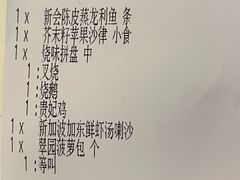 1 x 新会陈皮蒸龙利鱼 条
1 x 芥末籽苹果沙律 小食
1 x 烧味拼盘 中
1 : 叉烧
1 : 烧鹅
1 : 贵妃鸡
1 x 新加波加东鲜虾汤喇沙
1 x 翠园菠萝包 个
1 : 等叫